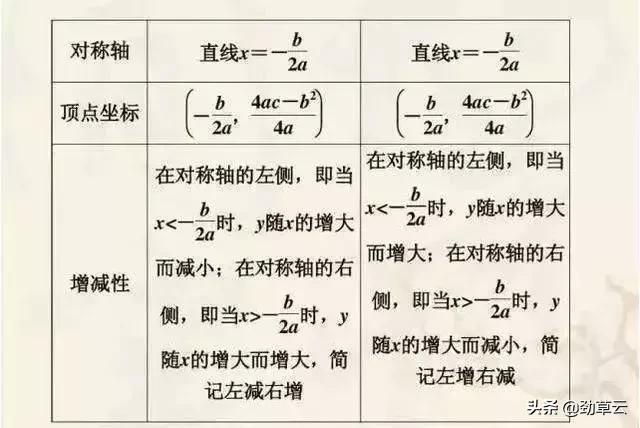 对称轴
直线x=-b/2a
直线x=-b/2a
顶点坐标
(-b/2a, 4ac-b²/4a)
(-b/2a, 4ac-b²/4a)
增减性
在对称轴的左侧，即当
x<-b/2a时，y随x的增大
而减小；在对称轴的右
侧，即当x>-b/2a时，y
随x的增大而增大，简
记左减右增
在对称轴的左侧，即当
x<-b/2a时，y随x的增大
而增大；在对称轴的右
侧，即当x>-b/2a时，y
随x的增大而减小，简
记左增右减
头条 @劲草云